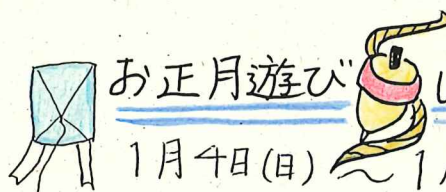 お正月遊び
1月4日(日)〜1